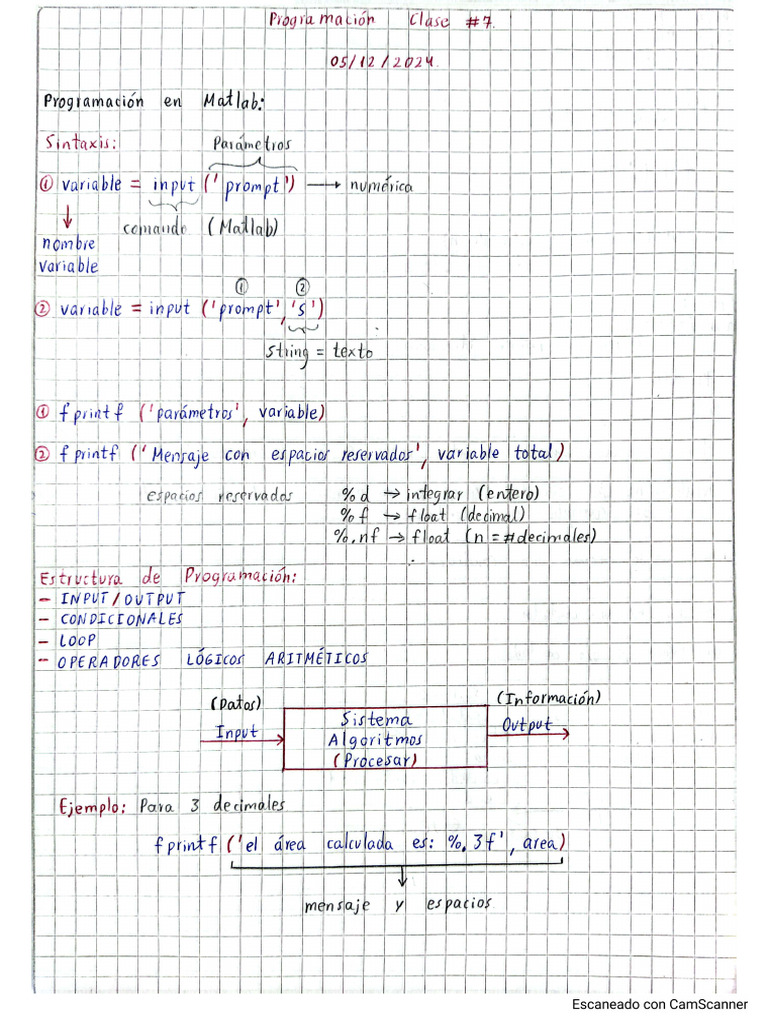 Programación Clase #7.
05/12/2024.
Programación en Matlab:
Sintaxis: Parámetros
① variable = input ('prompt') → numérica
comando (Matlab)
nombre
variable
① ②
② variable = input ('prompt', 's')
string = texto
① fprintf ('parámetros', variable)
② fprintf ('Mensaje con espacios reservados', variable total)
espacios reservados %d → integrar (entero)
%f → float (decimal)
%.nf → float (n = #decimales)
Estructura de Programación:
- INPUT/OUTPUT
- CONDICIONALES
- LOOP
- OPERADORES LÓGICOS ARITMÉTICOS
(Datos) (Información)
Input Sistema Output
Algoritmos
(Procesar)
Ejemplo: Para 3 decimales
fprintf ('el área calculada es: %.3f', area)
mensaje y espacios
Escaneado con CamScanner